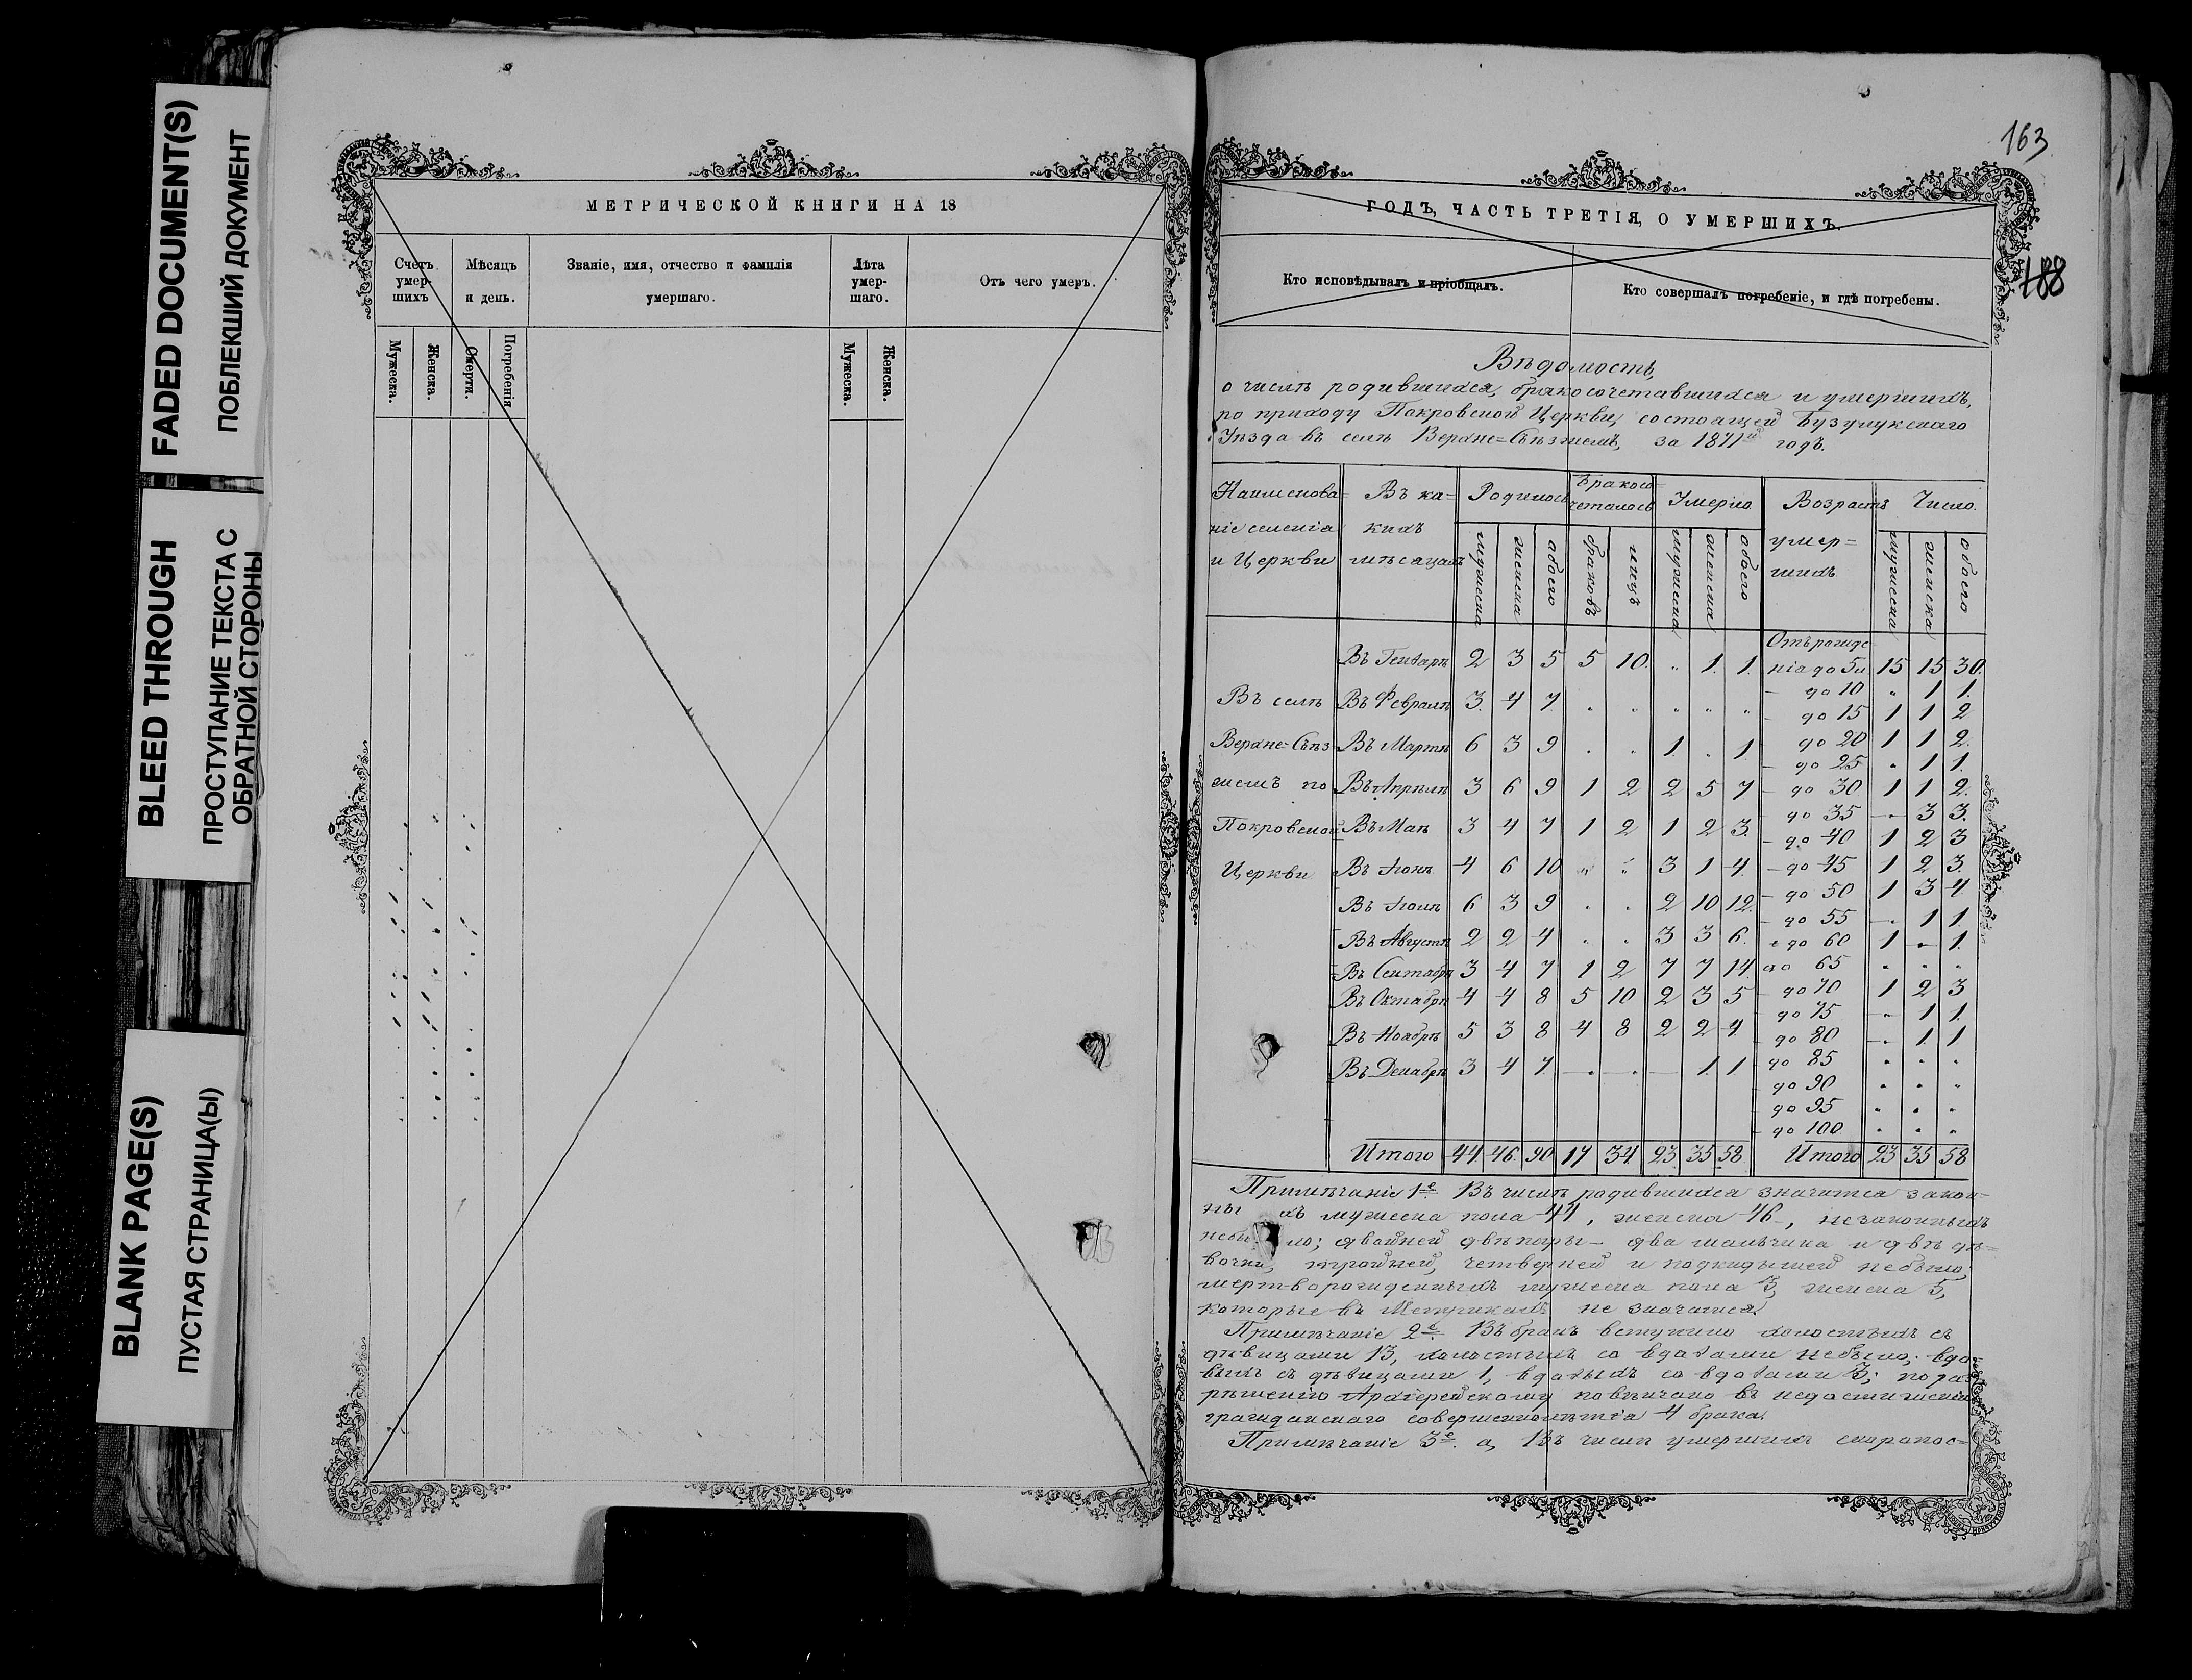 FADED DOCUMENT(S)
ПОБЛЕКШИЙ ДОКУМЕНТ
BLEED THROUGH
ПРОСТУПАНИЕ ТЕКСТА С
ОБРАТНОЙ СТОРОНЫ
BLANK PAGE(S)
ПУСТАЯ СТРАНИЦА(Ы)
МЕТРИЧЕСКОЙ КНИГИ НА 18
Счетъ умер-шихъ
Мѣсяцъ и день.
Званіе, имя, отчество и фамилія умершаго.
Лѣта умер-шаго.
Отъ чего умеръ.
Мужеска.
Женска.
Смерти.
Погребенія
Мужеска.
Женска.
163
ГОДЪ, ЧАСТЬ ТРЕТІЯ, О УМЕРШИХЪ.
Кто исповѣдывалъ и пріобщалъ.
Кто совершалъ погребеніе, и гдѣ погребены.
188
Вѣдомость,
о числѣ родившихся, бракосочетавшихся и умершихъ,
по приходу Покровской Церкви, состоящей Бузулукскаго
Уѣзда въ селѣ Верхне=Съѣзжемъ, за 1871й годъ.
Наименова=ніе селенія и Церкви
Въ ка=кихъ мѣсяцахъ
Родилось
Бракосо=четалось
Умерло
Возрастъ умер=шихъ
Число.
мужеска женска обоего браковъ лицъ мужеска женска обоего мужеска женска обоего
Въ селѣ Верхне=Съѣзжемъ по Покровской Церкви
Въ Генварѣ 2 3 5 5 10 " 1 1
Въ Февралѣ 3 4 7 " " " " "
Въ Мартѣ 6 3 9 " " 1 " 1
Въ Апрѣлѣ 3 6 9 1 2 2 5 7
Въ Маѣ 3 4 7 1 2 1 2 3
Въ Іюнѣ 4 6 10 " " 3 1 4
Въ Іюлѣ 6 3 9 " " 2 10 12
Въ Августѣ 2 2 4 " " 3 3 6
Въ Сентябрѣ 3 4 7 1 2 7 7 14
Въ Октябрѣ 4 4 8 5 10 2 3 5
Въ Ноябрѣ 5 3 8 4 8 2 2 4
Въ Декабрѣ 3 4 7 " " — 1 1
Итого 44 46 90 17 34 23 35 58
Отъ рожде
нія до 5и 15 15 30
— до 10 " 1 1
— до 15 1 1 2
— до 20 1 1 2
— до 25 " 1 1
— до 30 1 1 2
— до 35 " 3 3
— до 40 1 2 3
— до 45 1 2 3
— до 50 1 3 4
— до 55 " 1 1
— до 60 1 " 1
до 65 " " "
— до 70 1 2 3
— до 75 " 1 1
— до 80 " 1 1
— до 85 " " "
— до 90 " " "
— до 95 " " "
— до 100 " " "
Итого 23 35 58
Примѣчаніе 1е. Въ числѣ родившихся значится закон=
ны хъ мужеска пола 44, женска 46, незаконныхъ
небы ло; двойней двѣ пары — два мальчика и двѣ дѣ=
вочки, тройней, четверней и подкидышей небыло;
мертворожденныхъ мужеска пола 3, женска 5,
которые въ Метрикахъ не значатся.
Примѣчаніе 2е. Въ бракъ вступило холостыхъ съ
дѣвицами 13, холостыхъ со вдовами небыло; вдо=
выхъ съ дѣвицами 1, вдовыхъ со вдовами 3; по раз
рѣшенію Архіерейскому повѣнчано въ недостиженіи
гражданскаго совершеннолѣтія 4 брака.
Примѣчаніе 3е. а, Въ числѣ умершихъ скоропос=